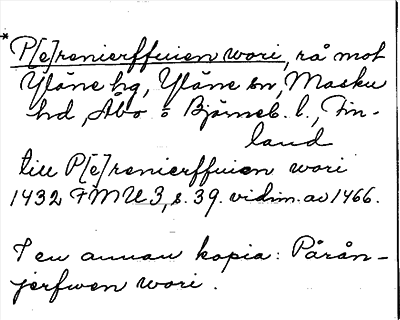 *P[e]renierffuien wori, rå mot
Yläne hg, Yläne sn, Masku
hd, Åbo o Björneb. l., Fin-
land
till P[e]renierffuien wori
1432 FMU 3, s. 39. vidim. av 1466.
I en annan kopia: Pärån-
jerfwen wori.